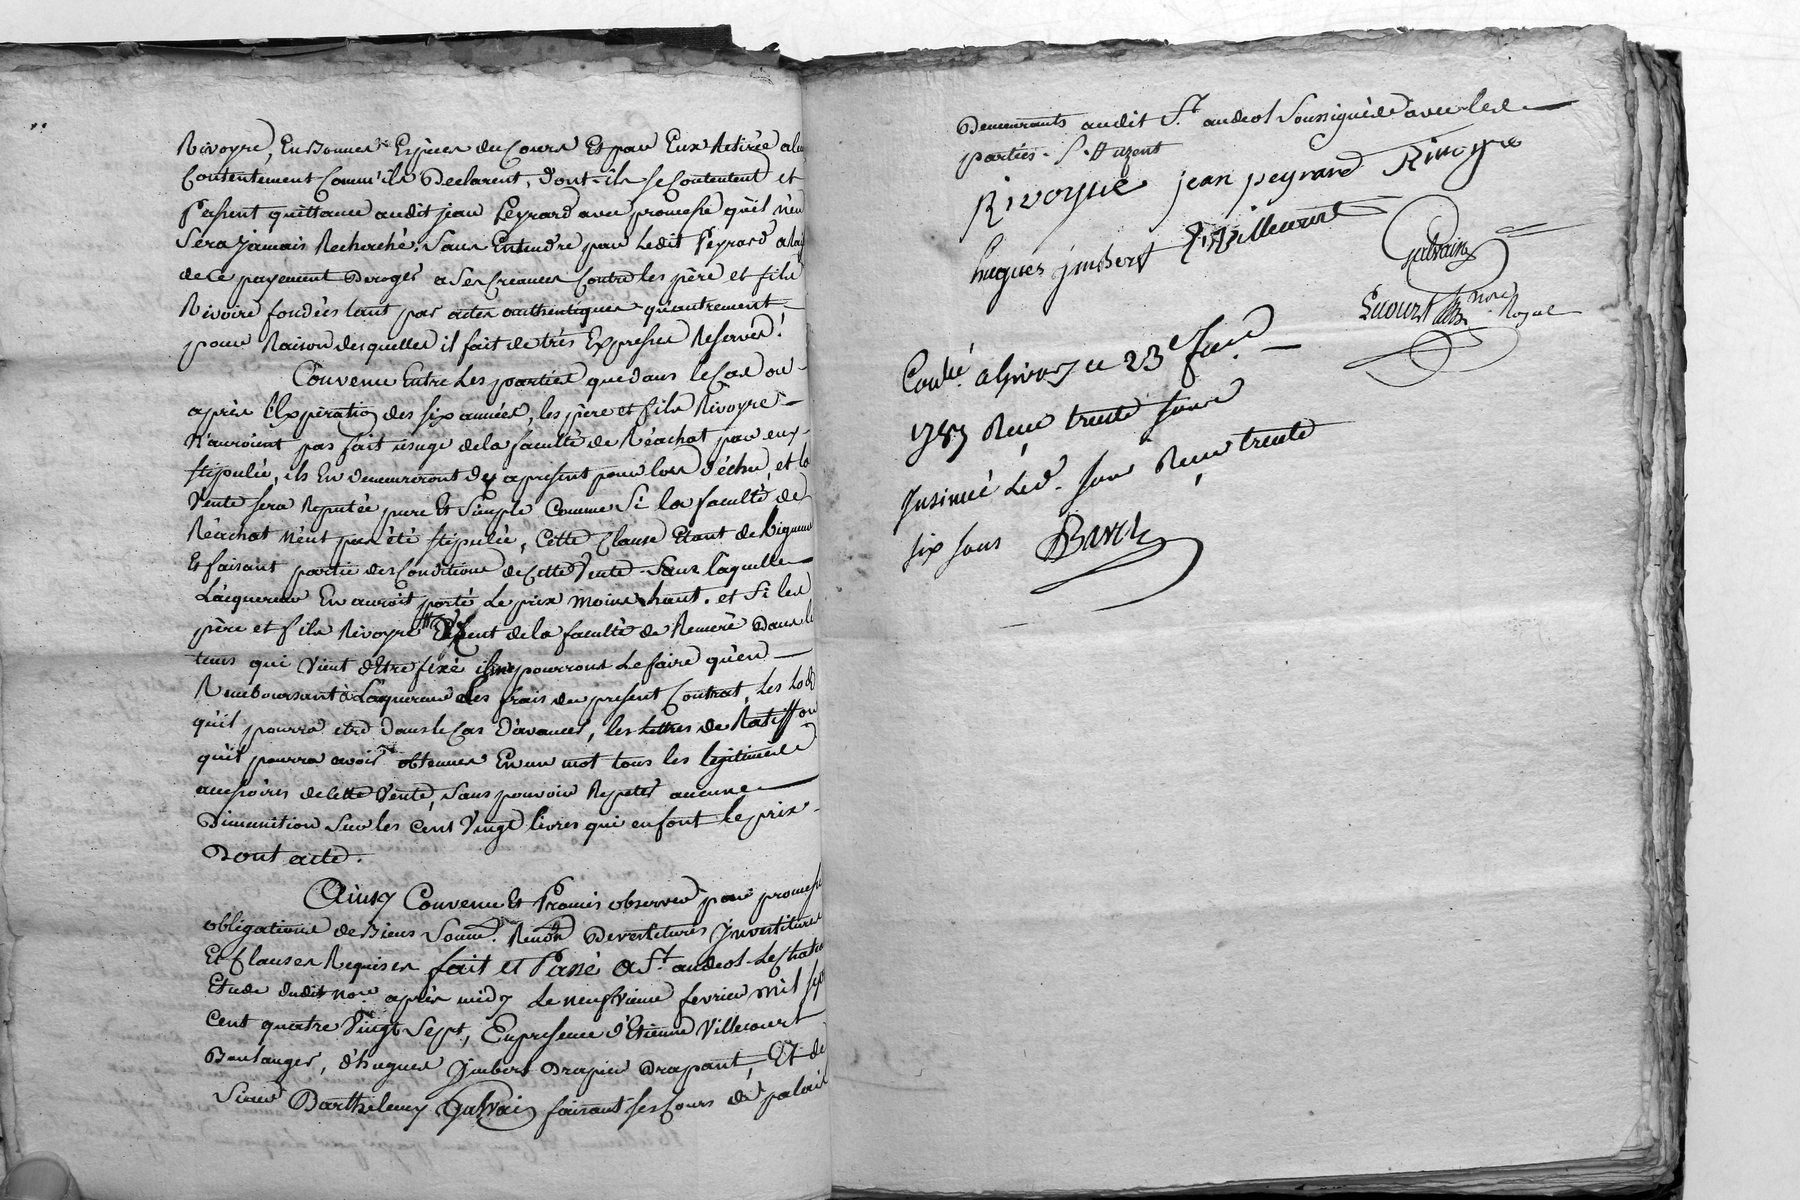 Rivoyre, En Bonnes Espèces du Cours Et par Eux Retirée a leur
Contentement Comm'ils Declarent, dont-ils se Contentent et
passent quittance audit jean Peyrard avec promesse quil n'en
Sera jamais Recherché. Sans Entendre par Ledit Peyrard
de ce payement Deroger a Ses Creances Contre les père et fils
Rivoire fondées tant par actes authentiques qu'autrement
pour Raison desquelles il fait de très Expresses Reserves!
Convenu Entre Les parties que dans le Cas ou
après l'Expiration des six années, les père et fils Rivoyre
N'auroient pas fait usage de la faculté de Réachat par eux
stipulée, ils En demeureront des apresent pour lors déchus, et la
Vente sera Reputée pure Et Simple Comme Si la faculté de
Réachat n'eut pas été stipulée, Cette Clause Etant de Rigueur
Et faisant partie des Conditions de Cette Vente Sans laquelle
L'acquereur En auroit porté Le prix moins haut. et Si les
père et fils Rivoyre de la faculté de Remeré Dans le
tems qui Vient d'Etre fixé ils ne pourront Le faire qu'en
Remboursant a L'acquereur Les frais du present Contrat, Les Lods
qu'il pourra etre dans le Cas d'avancer, les Lettres de Ratiffon
qu'il pourra avoir obtenues En un mot tous les légitimes
accessoires de cette Vente, Sans pouvoir Repeter aucune
Diminution Sur les Cent Vingt livres qui en font le prix
Dont acte.
Ainsy Convenu Et Promis observer par promesse
obligations de Biens Soumns. Renons Devestitures Investitures
Et Clauses Requises fait et Passé a St. andeol Le Chateau
Etude dudit Nore. après midy Le neufvieme fevrier mil sept
Cent quatre Vingt Sept, En presence d'Etienne Villecourt
Boulanger, d'hugues Imbert Drapier Drapant, Et de
Sieur Barthelemy Galvain faisant ses Cours de palais
Demeurants audit St. andeol Soussignés avec les
parties.
Rivoyre jean peyrard Rivoyre
hugues jmbert Villecourt
Galvain
nore Royal
Conlé. a Givors ce 23e fer.
1787 Reçu trente sous
Insinué Led. jour Reçu trente
six sous